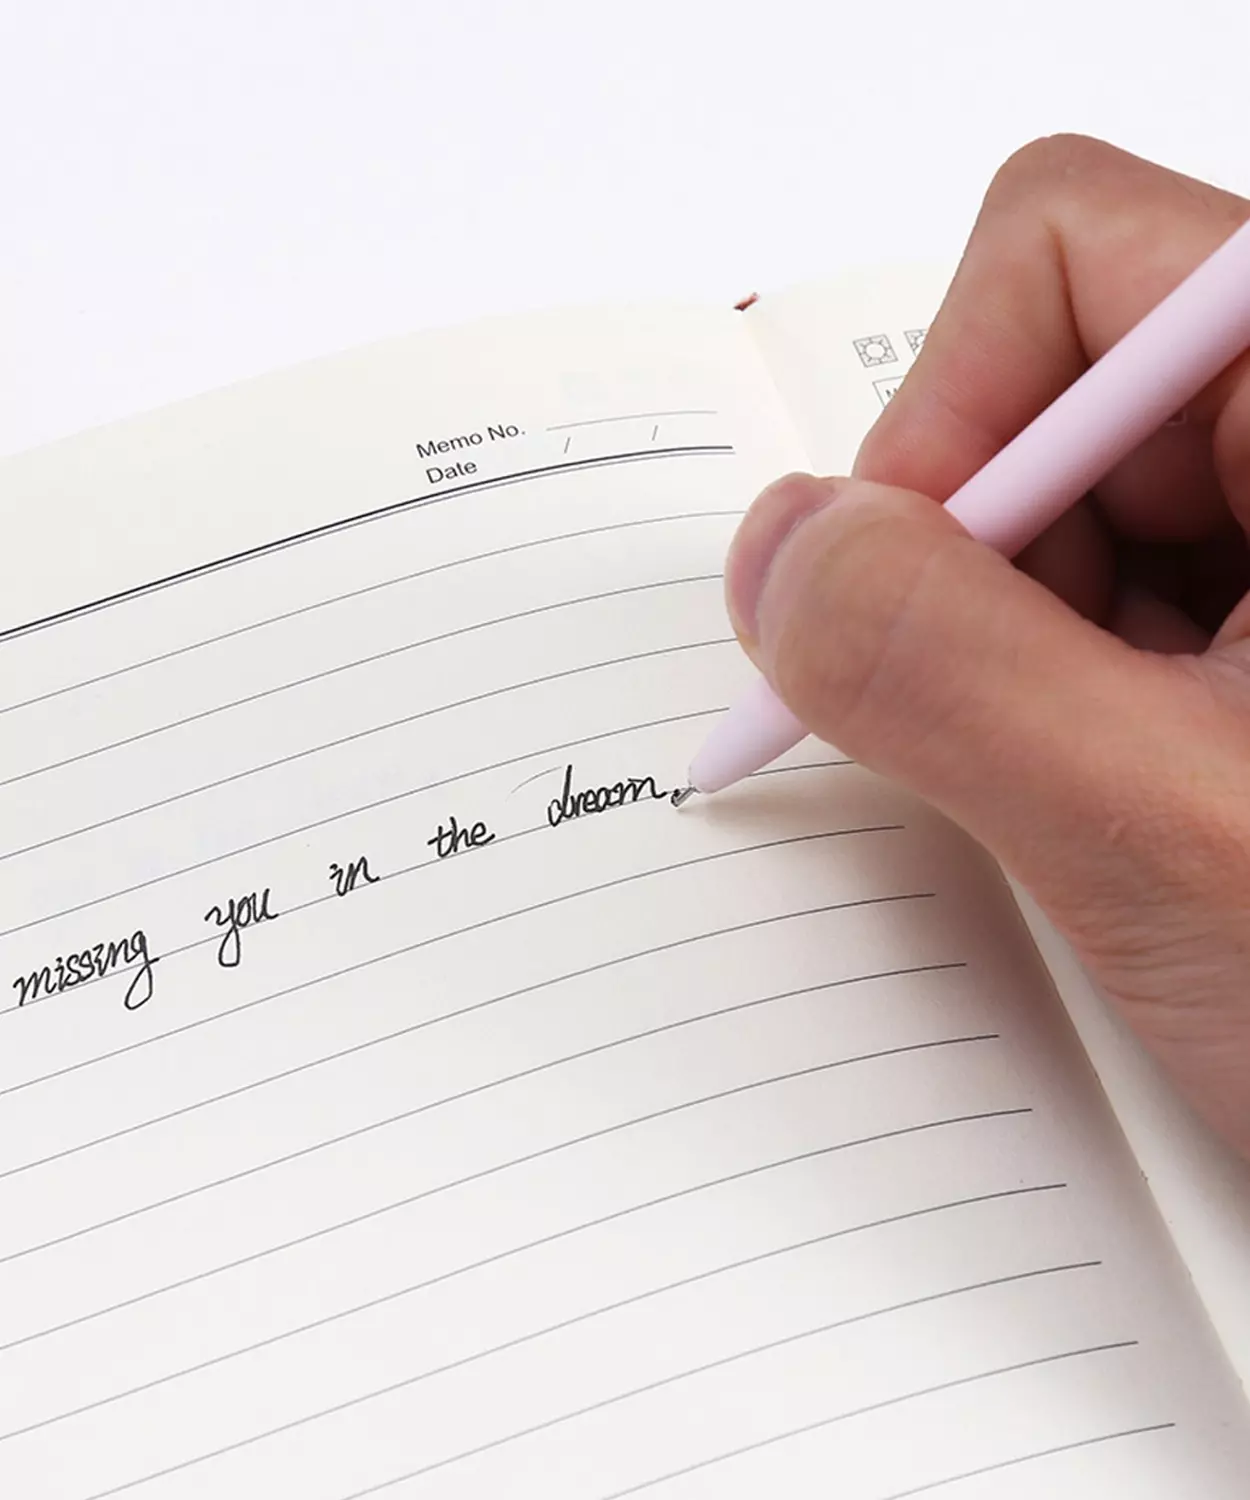 Memo No.
Date / /
missing you in the dream.